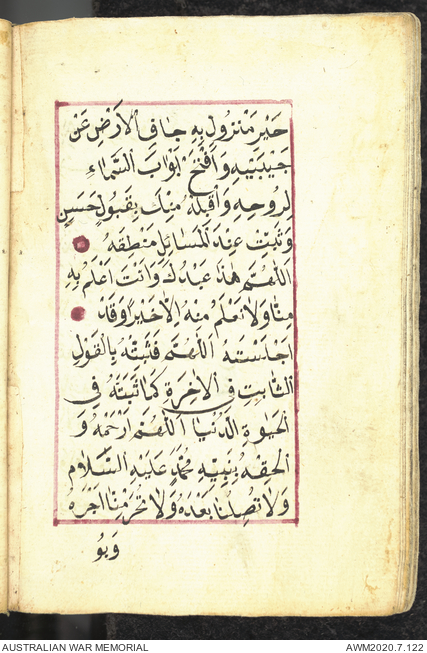 خَيْرُ مَنْزُولٍ بِهِ جَافِ الْاَرْضِ عَنْ
جَنْبَيْهِ وَافْتَحْ اَبْوَابَ السَّمَاءِ
لِرُوحِهِ وَاقْبَلْهُ مِنْكَ بِقَبُولٍ حَسَنٍ
وَثَبِّتْ عِنْدَ الْمَسَائِلِ مَنْطِقَهُ
اَللّٰهُمَّ هٰذَا عَبْدُكَ وَاَنْتَ اَعْلَمُ بِهِ
مِنَّا وَلَا نَعْلَمُ مِنْهُ اِلَّا خَيْرًا وَقَدْ
اَجْلَسْتَهُ اَللّٰهُمَّ فَثَبِّتْهُ بِالْقَوْلِ
الثَّابِتِ فِي الْاٰخِرَةِ كَمَا ثَبَّتَّهُ فِي
الْحَيٰوةِ الدُّنْيَا اَللّٰهُمَّ ارْحَمْهُ وَ
اَلْحِقْهُ بِنَبِيِّهِ مُحَمَّدٍ عَلَيْهِ السَّلَامُ
وَلَا تُضِلَّنَا بَعْدَهُ وَلَا تَحْرِمْنَا اَجْرَهُ
AUSTRALIAN WAR MEMORIAL AWM2020.7.122